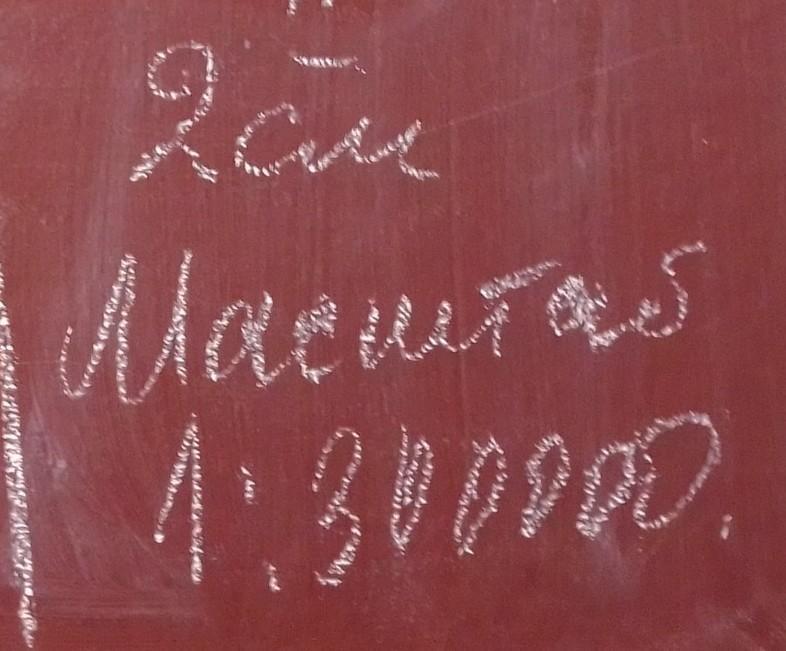 2 см
Масштаб
1:300000.